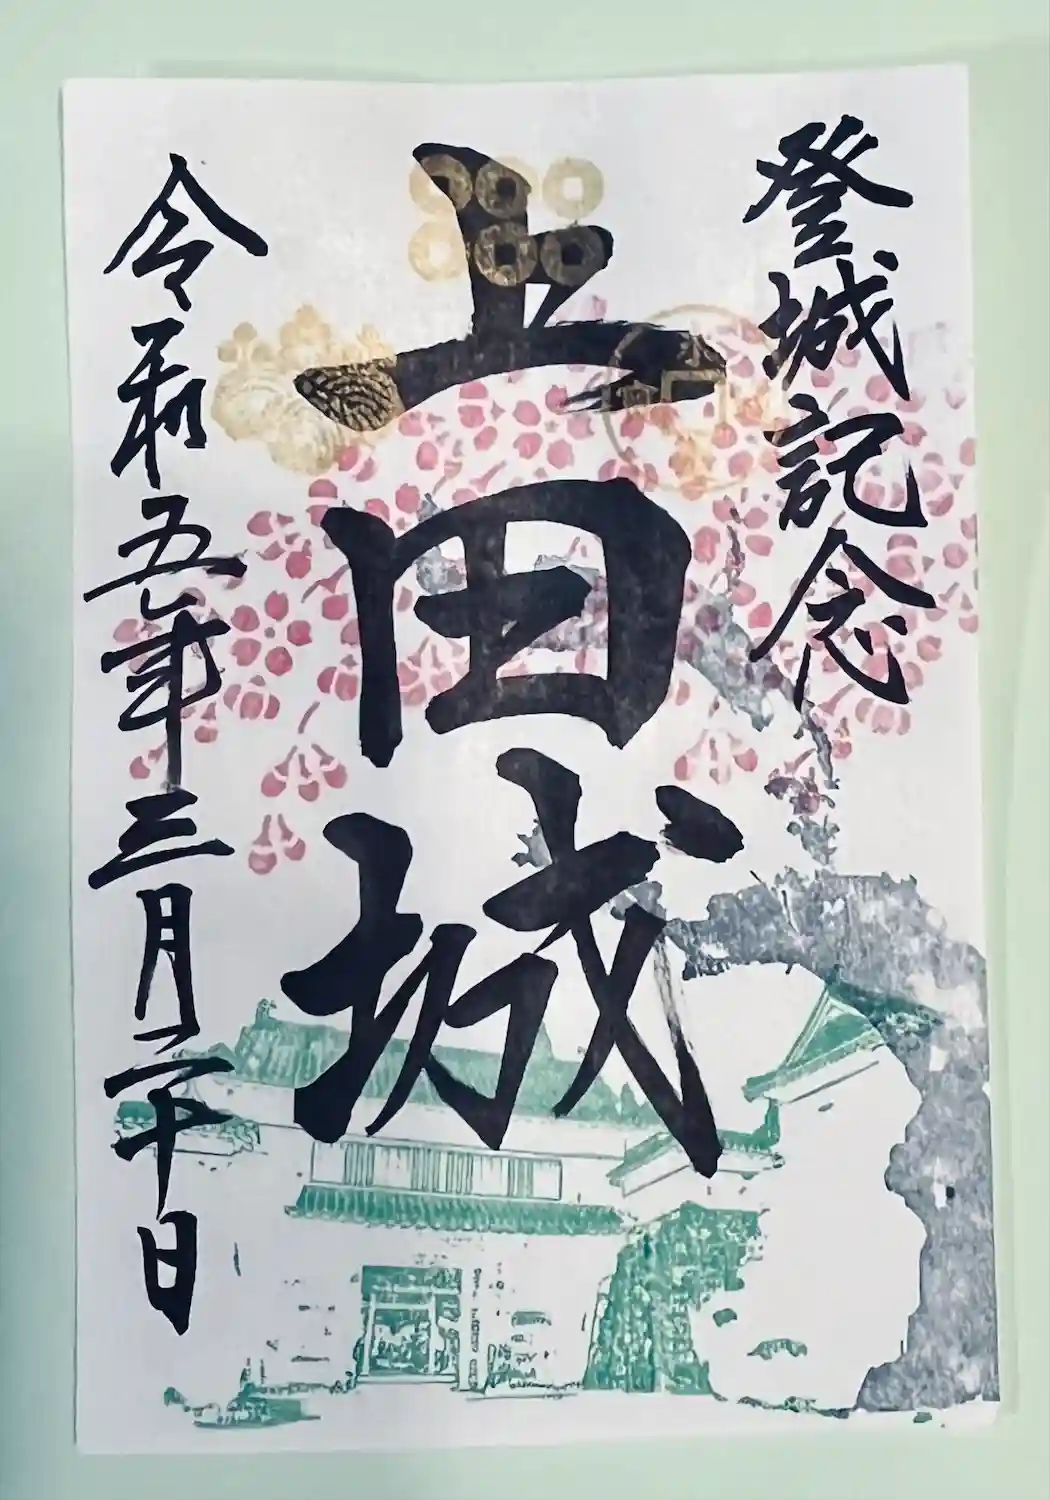 登城記念
上田城
令和五年三月二十日